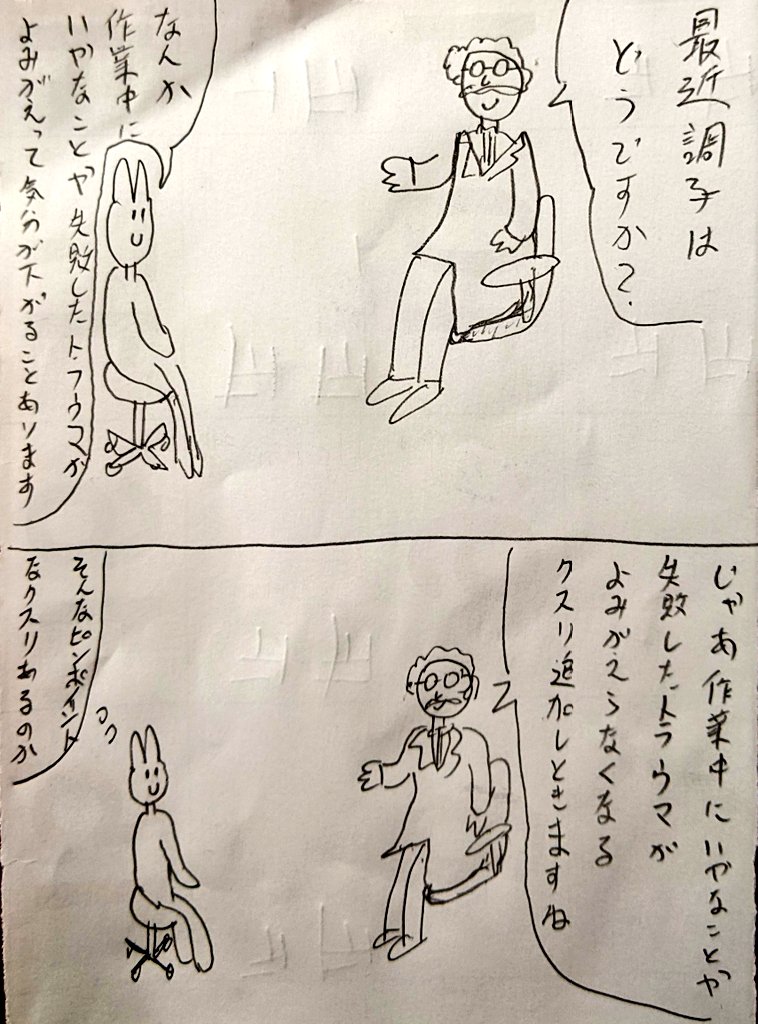 最近調子は
どうですか?
なんか
作業中に
いやなことや失敗したトラウマが
よみがえって気分が下がることあります
じゃあ作業中にいやなことや
失敗したトラウマが
よみがえらなくなる
クスリ追加しときますね
そんなピンポイント
なクスリあるのか